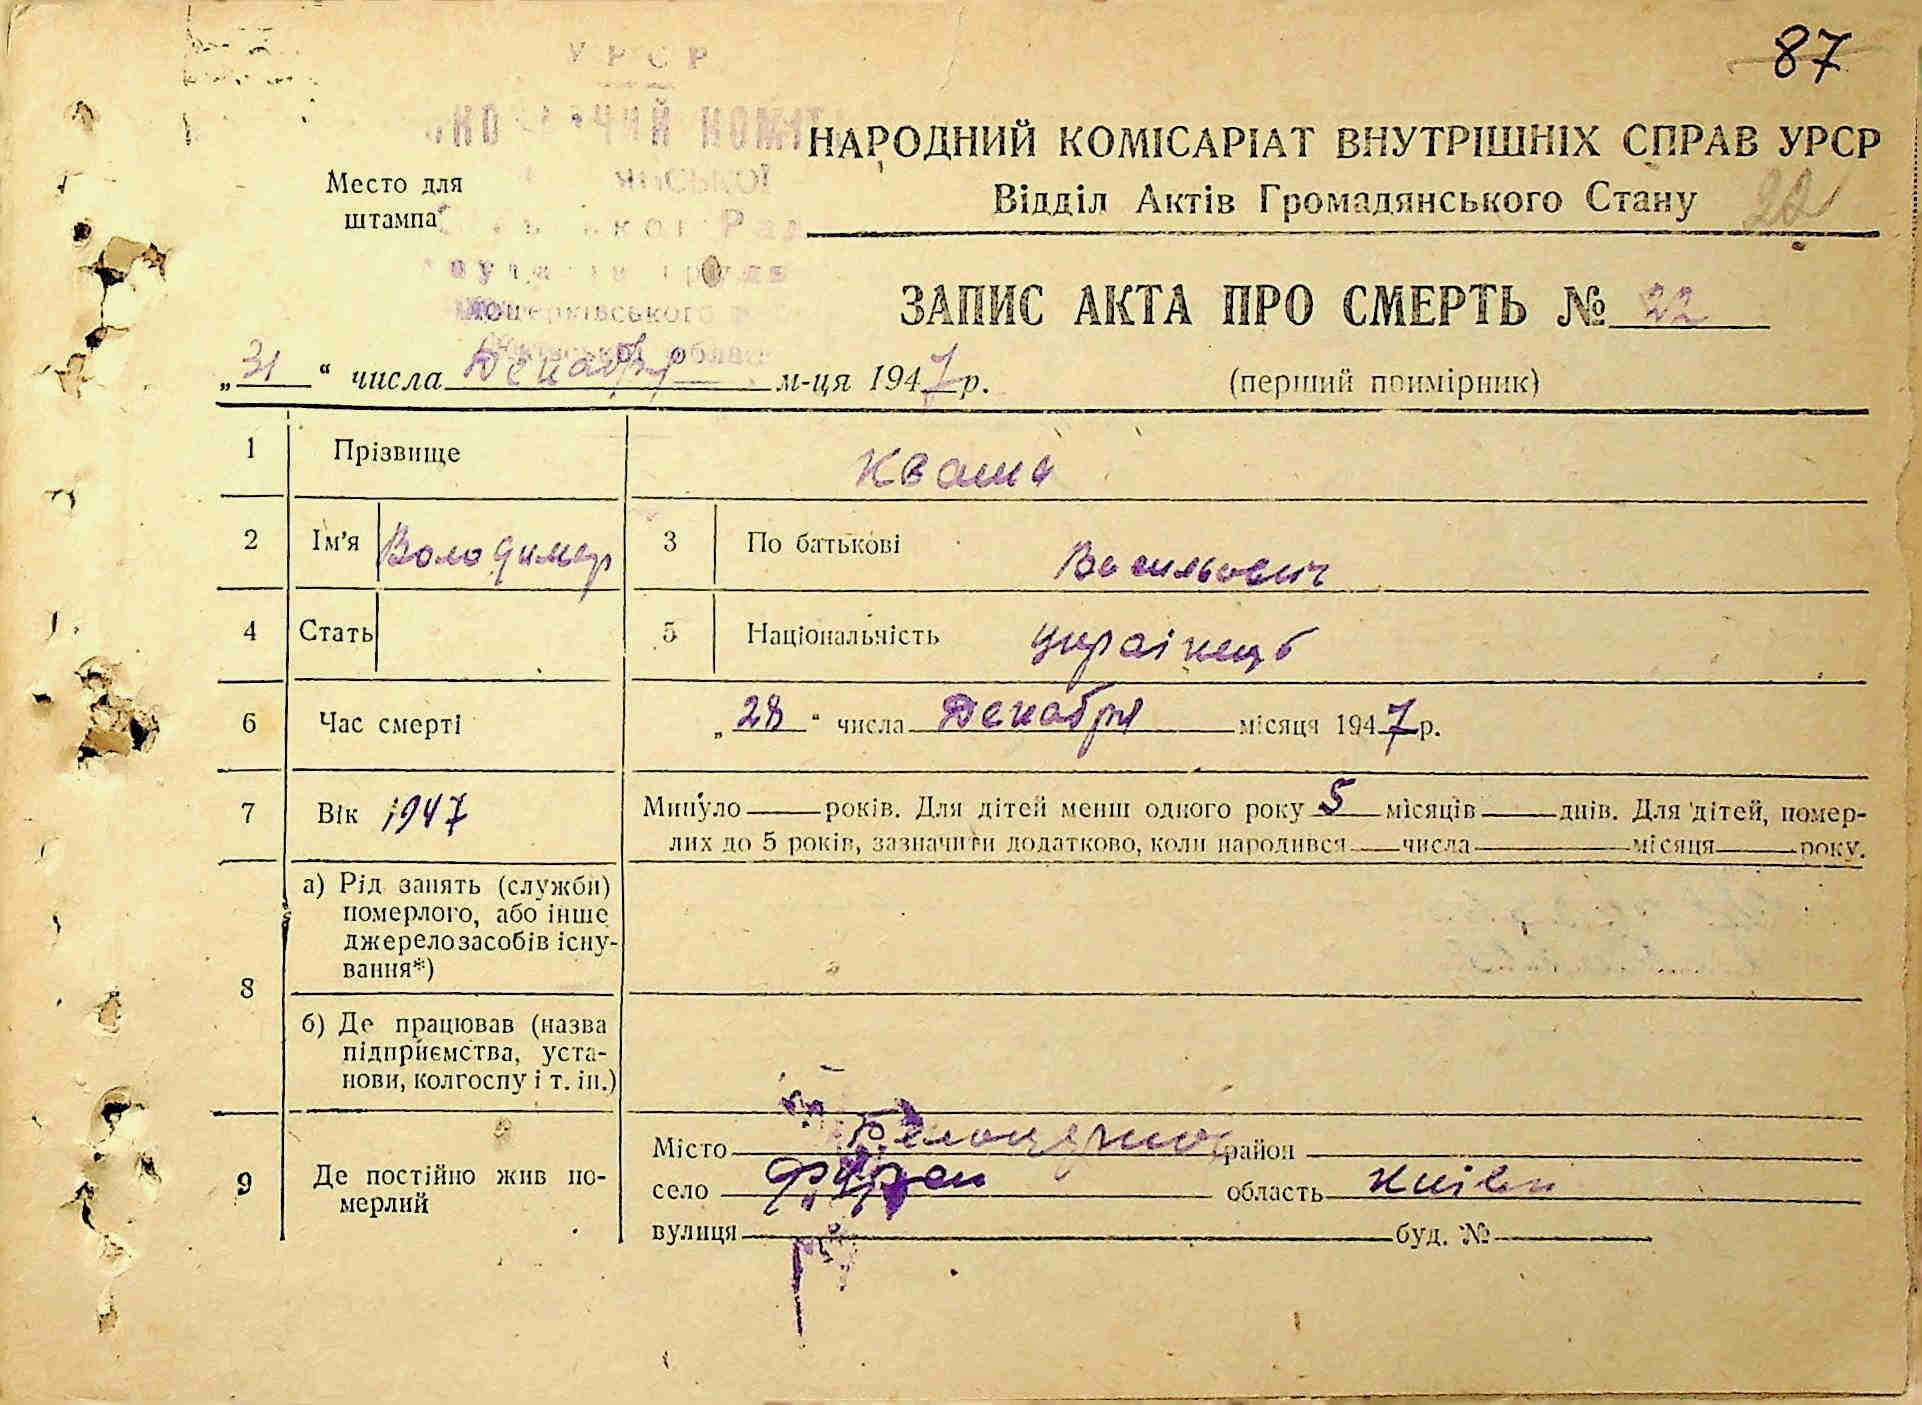 87
УРСР
НАРОДНИЙ КОМІСАРІАТ ВНУТРІШНІХ СПРАВ УРСР
Место для
штампа
Відділ Актів Громадянського Стану
22
ЗАПИС АКТА ПРО СМЕРТЬ № 22
„31“ числа Декабря м-ця 1947 р.
(перший примірник)
1 Прізвище Кваша
2 Ім'я Володимер 3 По батькові Васильович
4 Стать 5 Національність Українець
6 Час смерті „28“ числа Декабря місяця 1947 р.
7 Вік 1947 Минуло років. Для дітей менш одного року 5 місяців днів. Для дітей, помер-
лих до 5 років, зазначити додатково, коли народився числа місяця року.
8 а) Рід занять (служби)
померлого, або інше
джерело засобів існу-
вання*)
б) Де працював (назва
підприємства, уста-
нови, колгоспу і т. ін.)
9 Де постійно жив по-
мерлий
Місто район
село область Київ
вулиця буд. №